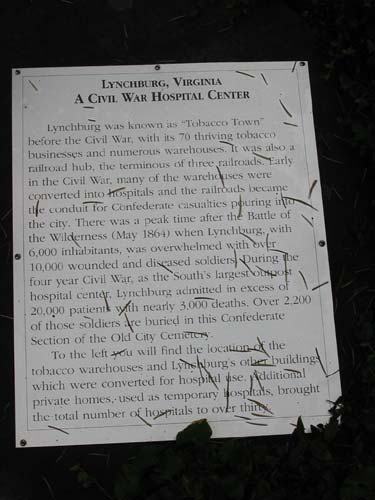 LYNCHBURG, VIRGINIA
A CIVIL WAR HOSPITAL CENTER
Lynchburg was known as "Tobacco Town"
before the Civil War, with its 70 thriving tobacco
businesses and numerous warehouses. It was also a
railroad hub, the terminous of three railroads. Early
in the Civil War, many of the warehouses were
converted into hospitals and the railroads became
the conduit for Confederate casualties pouring into
the city. There was a peak time after the Battle of
the Wilderness (May 1864) when Lynchburg, with
6,000 inhabitants, was overwhelmed with over
10,000 wounded and diseased soldiers. During the
four year Civil War, as the South's largest outpost
hospital center, Lynchburg admitted in excess of
20,000 patients with nearly 3,000 deaths. Over 2,200
of those soldiers are buried in this Confederate
Section of the Old City Cemetery.
To the left you will find the location of the
tobacco warehouses and Lynchburg's other buildings
which were converted for hospital use. Additional
private homes, used as temporary hospitals, brought
the total number of hospitals to over thirty.